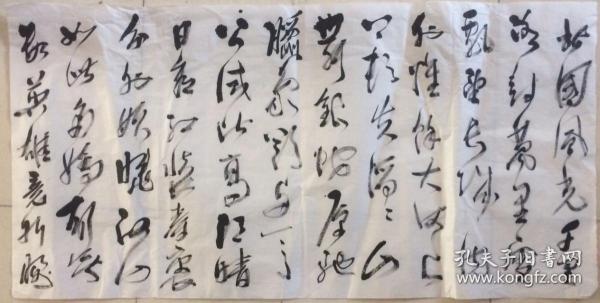 北國風光千里
冰封萬里雪
飄望長城内
外惟餘大河上
下頓失滔滔山
舞銀蛇原馳
蠟象欲與天
公试比高須晴
日看红装素裹
分外妖嬈江山
如此多嬌引无
数英雄竞折腰
孔夫子旧书网
www.kongfz.com